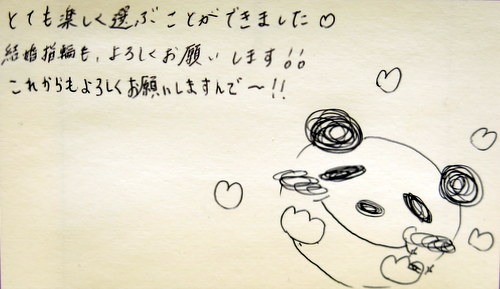 とても楽しく選ぶことができました♡
結婚指輪も、よろしくお願いします!!
これからもよろしくお願いしますんで〜!!